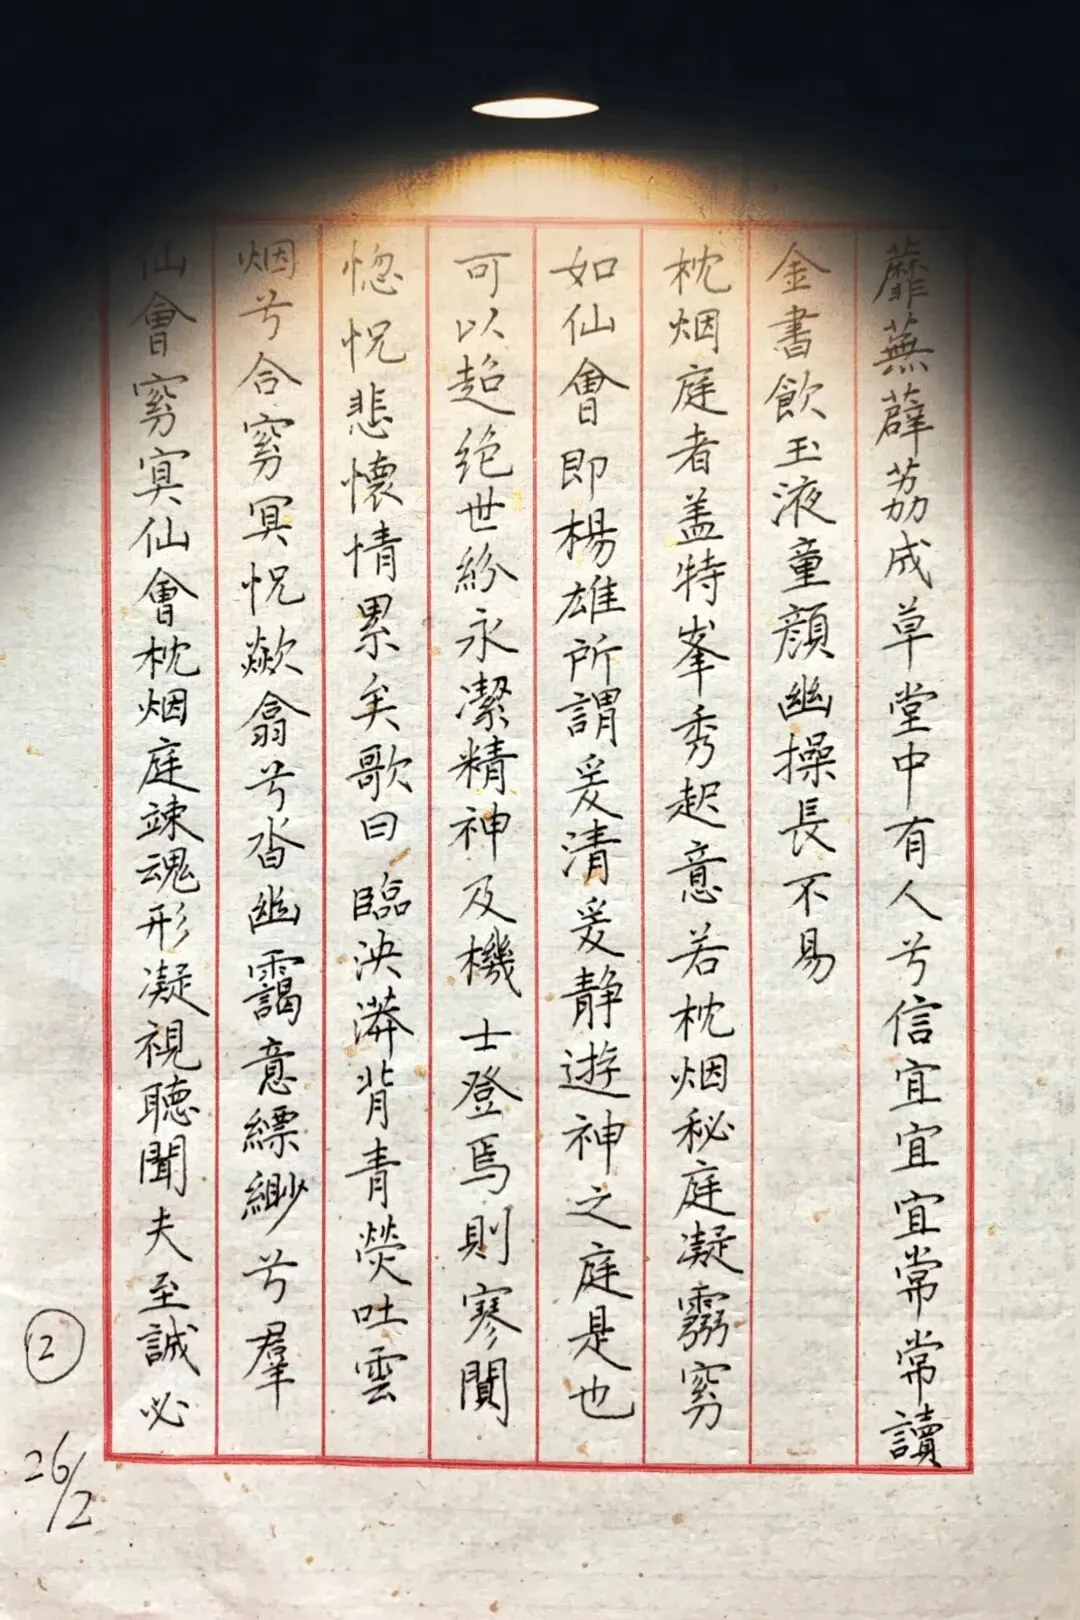 蘼蕪薜荔成草堂中有人兮信宜宜宜常常讀
金書飲玉液童顏幽操長不易
枕烟庭者盖特峯秀起意若枕烟秘庭凝窈
如仙會即楊雄所謂爰清爰静遊神之庭是也
可以超绝世紛永潔精神及機士登焉則寥闃
惚怳悲懷情累矣歌曰臨泱漭背青熒吐雲
烟兮合窈冥怳歘翕兮沓幽靄意縹緲兮羣
仙會窈冥仙會枕烟庭竦魂形凝視聽聞夫至誠必
②
26/2